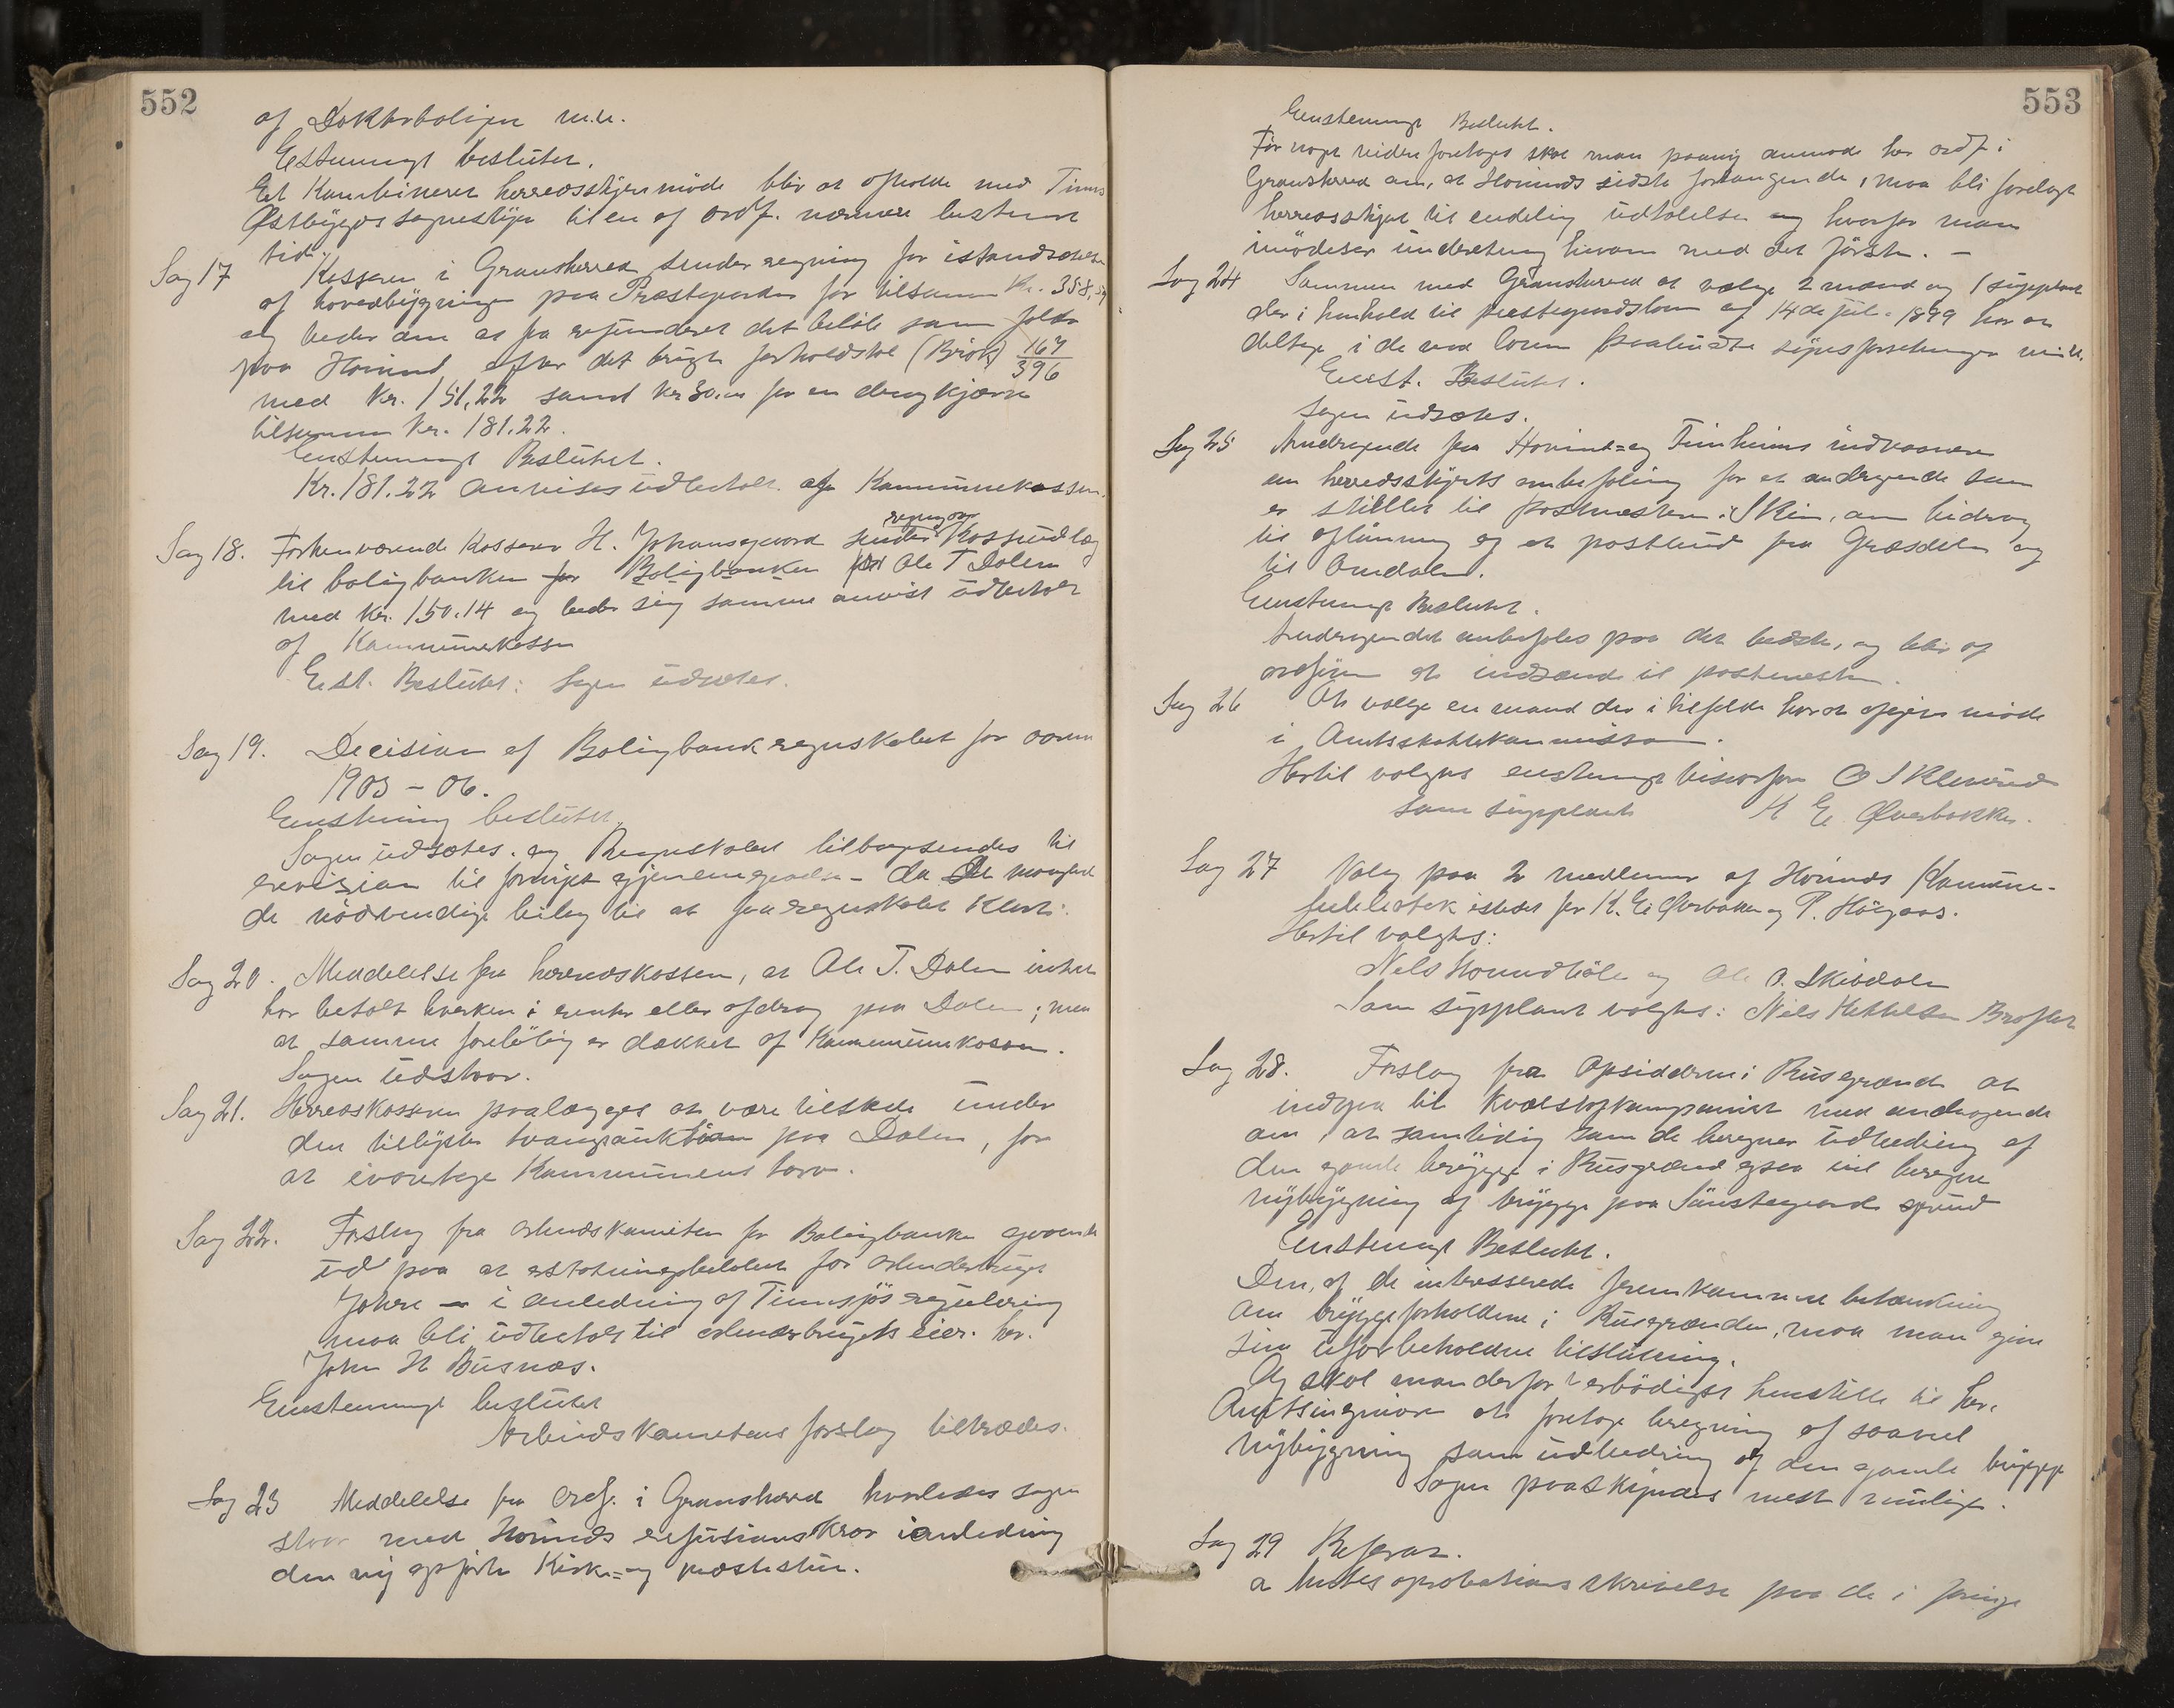 552
af Doktorboligen m.v.
Estemmigt besluttet.
Et Kombineret herredsstyremöde blir at afholde med Tinns
Østbygds sognestyre til en af ordf. nærmere bestemt
tid.
Sag 17 Kassereren i Gransherred sender regning for istandsættelse
af hovedbygningen paa Præstegaarden for tilsammen Kr. 358,59
og beder om at faa refunderet det beløb som falder
paa Hovind efter det brugte forholdstal (Brök) 167/396
med Kr. 151,22 samt kr 30,00 for en dengkjærre
tilsammen Kr. 181.22.
Enstemmigt Besluttet.
Kr. 181.22 anvises udbetalt af Kommunekassen.
regning over
Sag 18. Forhenværende Kasserer H. Johansgaard sender Kasseudlæg
til boligbanken for Boligbanken for Ole T Dalen
med Kr. 150.14 og beder sig samme anvist udbetalt
af Kommunekassen
Enst. Besluttet: Sagen udsættes.
Sag 19. Decision af Boligbankregnskabet for aarene
1905 - 06.
Enstemmig besluttet.
Sagen udsættes. og Regnskabet tilbagesendes til
revision til fornyet gjennemgaaelse - da der manglet
de nödvendige bilag til at faa regnskabet klart.
Sag 20. Meddelelse fra herredskassereren, at Ole T. Dalen intet
har betalt hverken i renter eller afdrag paa Dalen; men
at samme foreløbig er dækket af Kommunekassen.
Sagen udstaar.
Sag 21. Herredskassereren paalægges at være tilstede under
den tillyste tvangsauktion paa Dalen, for
at ivaretage Kommunens tarv.
Sag 22. Forslag fra Arbeidskomiteen for Boligbanken gaaende
ud paa at erstatningsbeløbet for Arbeiderbruget
Johre - i anledning af Tinnsjøs regulering
maa bli udbetalt til arbeiderbrugets eier. hr.
John H Busnæs.
Enstemmigt besluttet
Arbeidskomiteens forslag tiltrædes.
Sag 23 Meddelelse fra Ordf. i Gransherred hvorledes sagen
staar med Hovinds refusionskrav i anledning
den ny opførte Kirke= og præstestue.
553
Enstemmigt Besluttet.
Før noget videre foretages skal man paany anmode hr ordf i
Gransherred om, at Hovinds sidste forlangende, maa bli forelagt
herredsstyret til endelig udtalelse og hvorfor man
imödeser underretning herom med det første. -
Sag 24 Sammen med Gransherred at vælge 2 mænd og 1 suppleant
der i henhold til præstegaardsloven af 14de juli 1899 har at
deltage i de ved loven paabudte synsforretninger m.v.
Enst. Besluttet.
Sagen udsættes.
Sag 25 Andragende fra Hovind= og Tinnheims indvaanere
om herredsstyrets anbefaling for et andragende som
er stillet til postmesteren i Skien, om bidrag
til aflønning af et postbud fra Græsdalen og
til Omdalen.
Enstemmigt Besluttet.
Andragendet anbefales paa det bedste, og blir af
ordføreren at indsende til postmesteren.
Sag 26 At vælge en mand der i tilfælde har at afgive møde
i Amtsskattekommissionen.
Hertil valgtes enstemmigt viseordfører O J Klevrud
som suppleant K E Øverbakken.
Sag 27 Valg paa 2 medlemer af Hovinds Kommune-
bibliotek istedet for K. E. Øverbakken og P. Haugaas.
Hertil valgtes:
Nels Hovindbøle og Ole O. Skirdalen
Som suppleant valgtes: Nils Kittelsen Brofløt
Sag 28. Forslag fra Opsidderne i Rusgrænd at
indgaa til Kvælstofkompaniet med andragende
om, at samtidig som de beregner udbedring af
den gamle brygge i Rusgrænd ogsaa vil beregne
nybygning af brygge paa Sønstegaards grund
Enstemmigt Besluttet.
Den, af de interesserede fremkommne betænkning
om bryggeforholdene i Rusgrænden, maa man give
sin uforbeholdne tilslutning.
Og skal man derfor erbödigst henstille til hr.
Amtsingeniøren at foretage beregning af saavel
nybygning som udbedring af den gamle brygge
Sagen paaskyndes mest mulig.
Sag 29 Referat.
a Amtets aprobationsskrivelse paa de i forrige